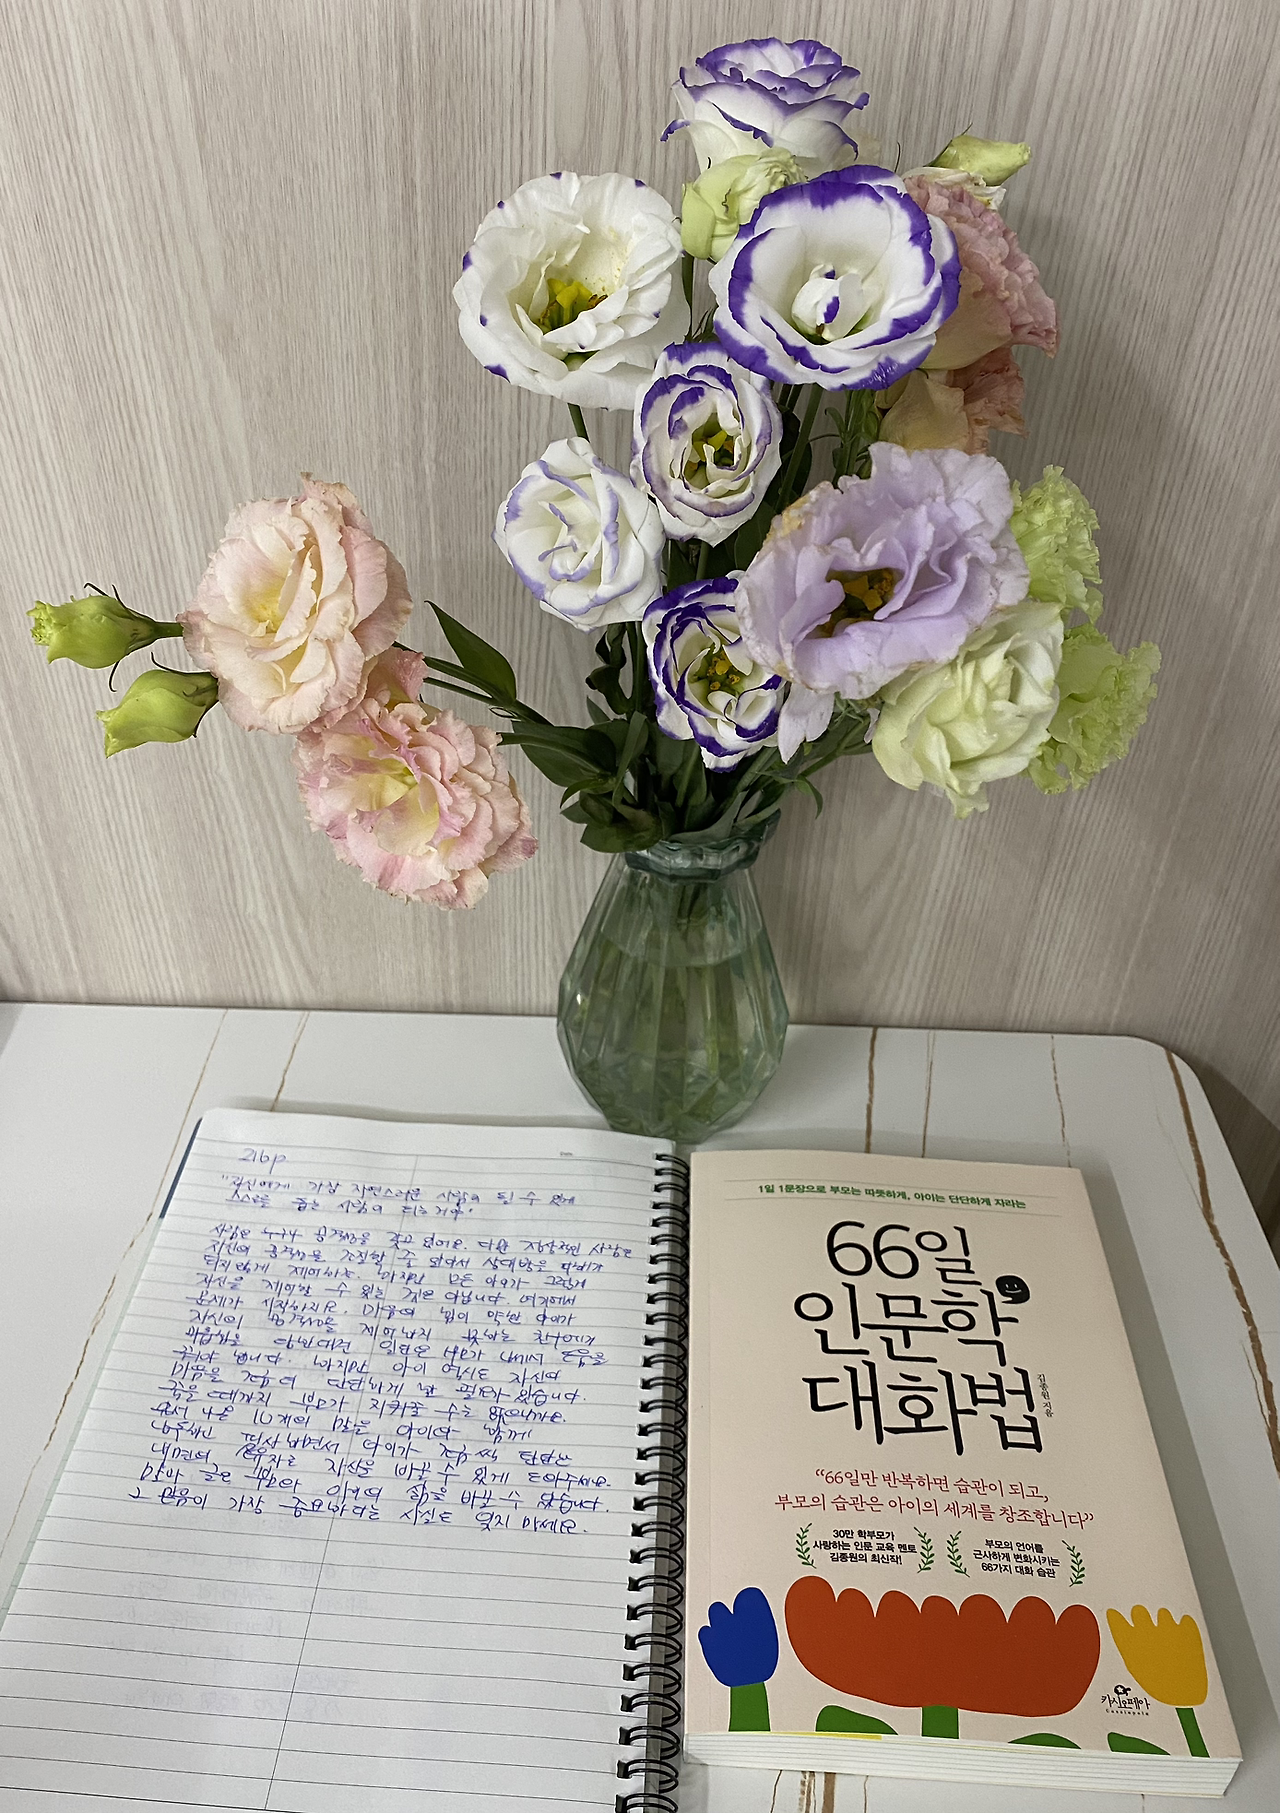 216p
"자신에게 가장 자연스러운 사람이 될 수 있게
스스로를 돕는 사람이 되는 거야."
사람은 누구나 공격성을 갖고 있어요. 다만 정상적인 사람은
자신의 공격성을 조절할 줄 알아서 상대방을 피해가
되지 않게 제어하죠. 하지만 모든 아이가 그렇게
자신을 제어할 수 있는 것은 아닙니다. 여기에서
문제가 시작하지요. 마음의 힘이 약한 아이가
자신의 공격성을 제어하지 못하는 친구에게
괴롭힘을 당한다면 일단은 부모가 나서서 도움을
줘야 합니다. 하지만 아이 역시도 자신의
마음을 키워 단단하게 할 필요가 있습니다.
죽을 때까지 부모가 지켜줄 수는 없으니까요.
앞서 나온 10개의 말을 아이와 함께
낭독하고 필사하면서 아이가 조금씩 단단한
내면의 소유자로 자신을 바꿀 수 있게 도와주세요.
말과 글은 부모와 아이의 삶을 바꿀 수 있습니다.
그 믿음이 가장 중요하다는 사실도 잊지 마세요.
1일 1문장으로 부모는 따뜻하게, 아이는 단단하게 자라는
66일
인문학
대화법
김종원 지음
"66일만 반복하면 습관이 되고,
부모의 습관은 아이의 세계를 창조합니다"
30만 학부모가
사랑하는 인문 교육 멘토
김종원의 최신작!
부모의 언어를
근사하게 변화시키는
66가지 대화 습관
카시오페아
Cassiopeia